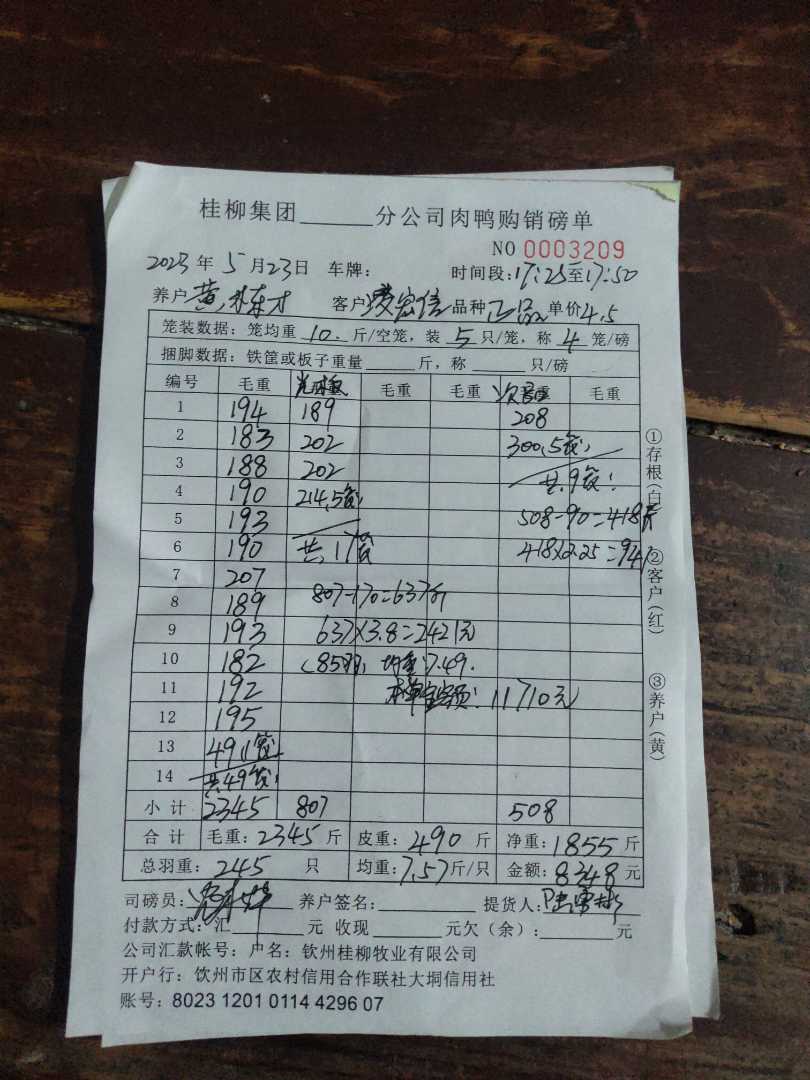 桂柳集团______分公司肉鸭购销磅单
NO 0003209
2023年5月23日 车牌: 时间段:17:25至17:50
养户 黄 才 客户 凌宏信 品种 正品 单价 4.5
笼装数据: 笼均重 10. 斤/空笼, 装 5 只/笼, 称 4 笼/磅
捆脚数据: 铁筐或板子重量______斤, 称______只/磅
编号 毛重 毛重 毛重 毛重
1 194 189 208
2 183 202 300,5笼,
3 188 202 共9笼:
4 190 214,5笼:
5 193 508-90=418斤
6 190 共17笼 418×2.25=941
7 207
8 189 807-170=637斤
9 193 637×3.8=2421元
10 182 (85羽, 均重:7.49.
11 192 本单金额: 11710元
12 195
13 49,1笼
14 共49笼:
小计 2345 807 508
合计 毛重:2345斤 皮重:490斤 净重:1855斤
总羽重:245只 均重:7.57斤/只 金额:8348元
司磅员: 养户签名:________ 提货人:
付款方式:汇______元 收现______元欠(余):______元
公司汇款帐号: 户名: 钦州桂柳牧业有限公司
开户行: 钦州市区农村信用合作联社大垌信用社
账号: 8023 1201 0114 4296 07
①存根(白)
②客户(红)
③养户(黄)